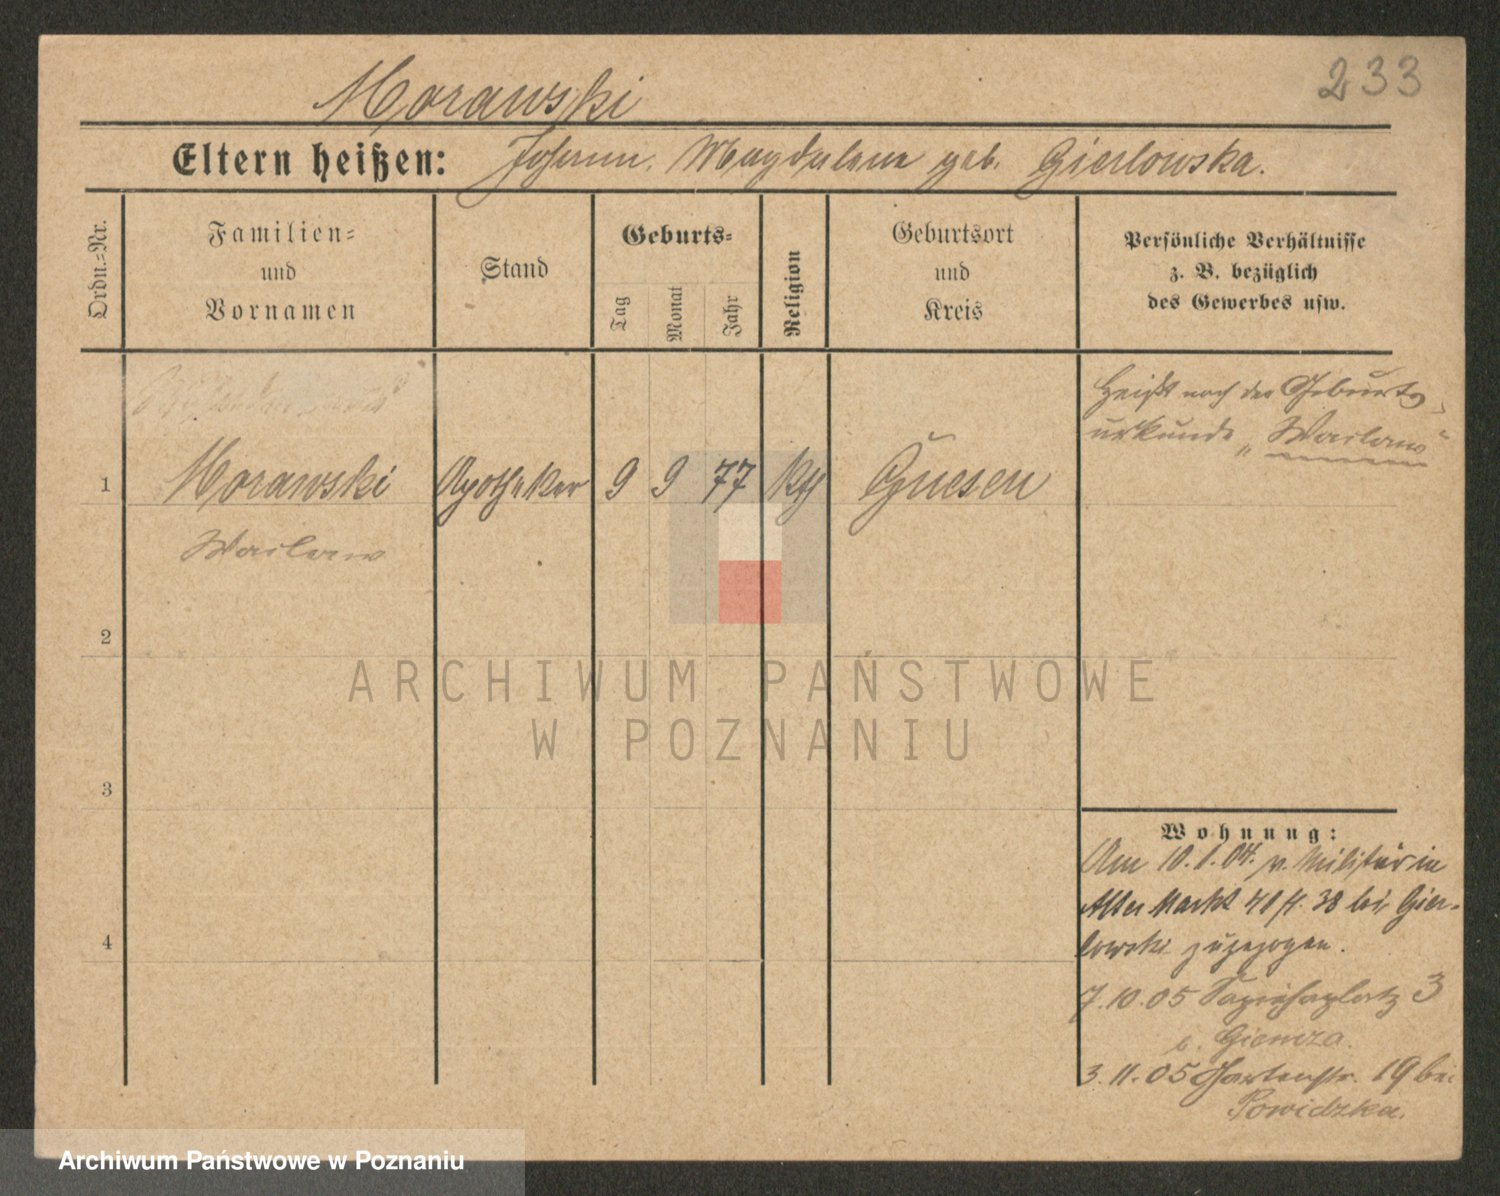 233
Morawski
Eltern heißen: Johann. Magdalena geb. Gierlowska.
Ordn.-Nr.
Familien-
und
Vornamen
Stand
Geburts-
Tag
Monat
Jahr
Religion
Geburtsort
und
Kreis
Persönliche Verhältnisse
z. B. bezüglich
des Gewerbes usw.
Heißt nach der Geburts-
urkunde „Wazlaw“
1 Morawski Apotheker 9 9 77 kth Gnesen
Wazlaw
2
3
4
Wohnung:
Am 10.1.04. v. Militär in
Alter Markt 41 38 bei Gier-
lowski zugezogen.
7.10.05 Sapiehaplatz 3
3.11.05 Gartenstr. 19 bei
Powidzka.
ARCHIWUM PAŃSTWOWE
W POZNANIU
Archiwum Państwowe w Poznaniu